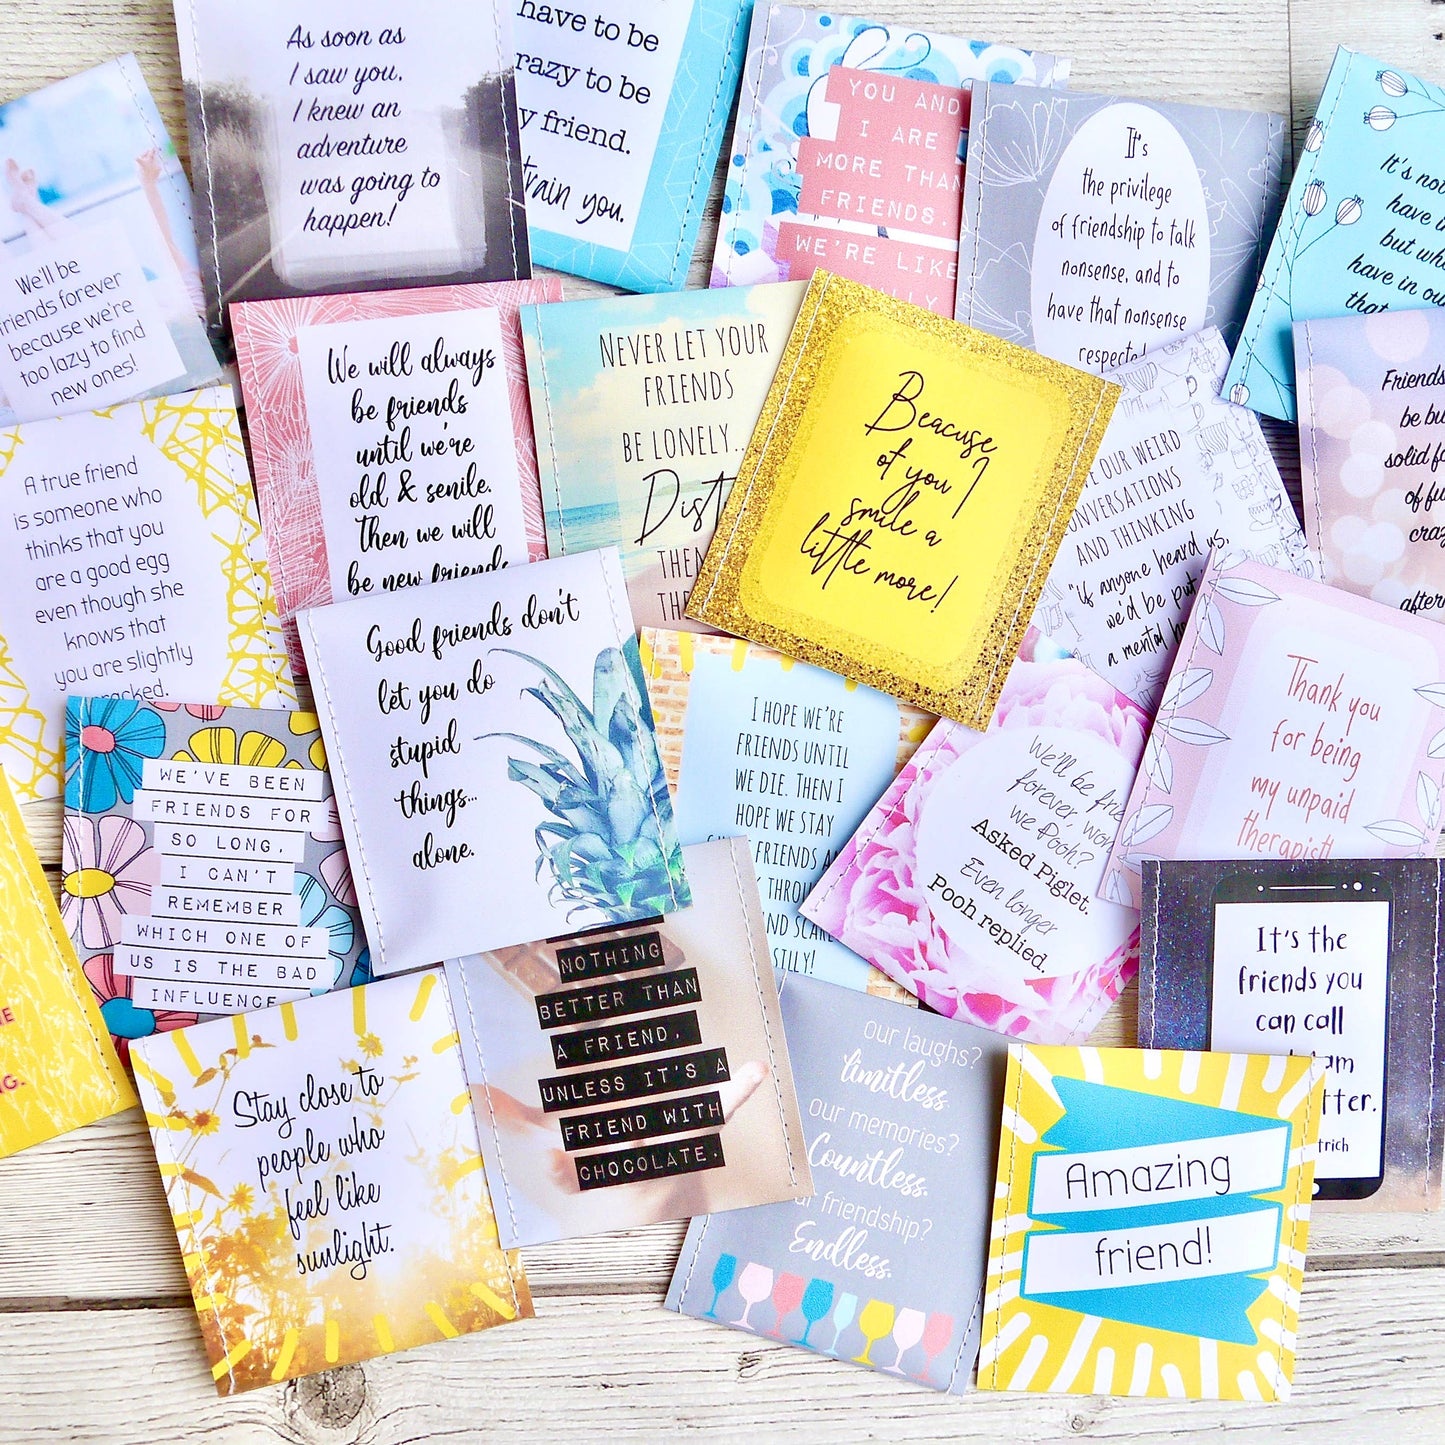 As soon as
I saw you,
I knew an
adventure
was going to
happen!
have to be
razy to be
y friend.
train you.
YOU AND
I ARE
MORE THAN
FRIENDS.
WE'RE LIKE
It's
the privilege
of friendship to talk
nonsense, and to
have that nonsense
It's not
have in
but wh
have in ou
that
We'll be
riends forever
because we're
too lazy to find
new ones!
We will always
be friends
until we're
old & senile.
Then we will
be new friends
NEVER LET YOUR
FRIENDS
BE LONELY...
Dist
THE
THE
Beacuse
of you I
smile a
little more!
OUR WEIRD
ONVERSATIONS
AND THINKING
"if anyone heard us,
we'd be put
a mental h
Friends
be bu
solid f
of fu
craz
after
A true friend
is someone who
thinks that you
are a good egg
even though she
knows that
you are slightly
racked.
Good friends don't
let you do
stupid
things...
alone.
I HOPE WE'RE
FRIENDS UNTIL
WE DIE. THEN I
HOPE WE STAY
FRIENDS A
THROU
ND SCARE
SILLY!
We'll be frie
forever, won
we Pooh?
Asked Piglet.
Even longer
Pooh replied.
Thank you
for being
my unpaid
therapist!
WE'VE BEEN
FRIENDS FOR
SO LONG,
I CAN'T
REMEMBER
WHICH ONE OF
US IS THE BAD
INFLUENCE
NOTHING
BETTER THAN
A FRIEND,
UNLESS IT'S A
FRIEND WITH
CHOCOLATE.
It's the
friends you
can call
am
tter.
trich
NE
G.
Stay close to
people who
feel like
sunlight.
our laughs?
limitless.
our memories?
Countless.
ur friendship?
Endless.
Amazing
friend!